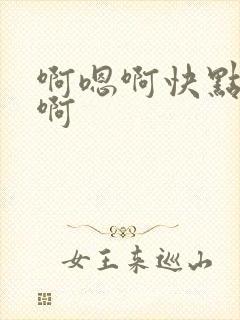 啊嗯啊快點
啊
女王来巡山